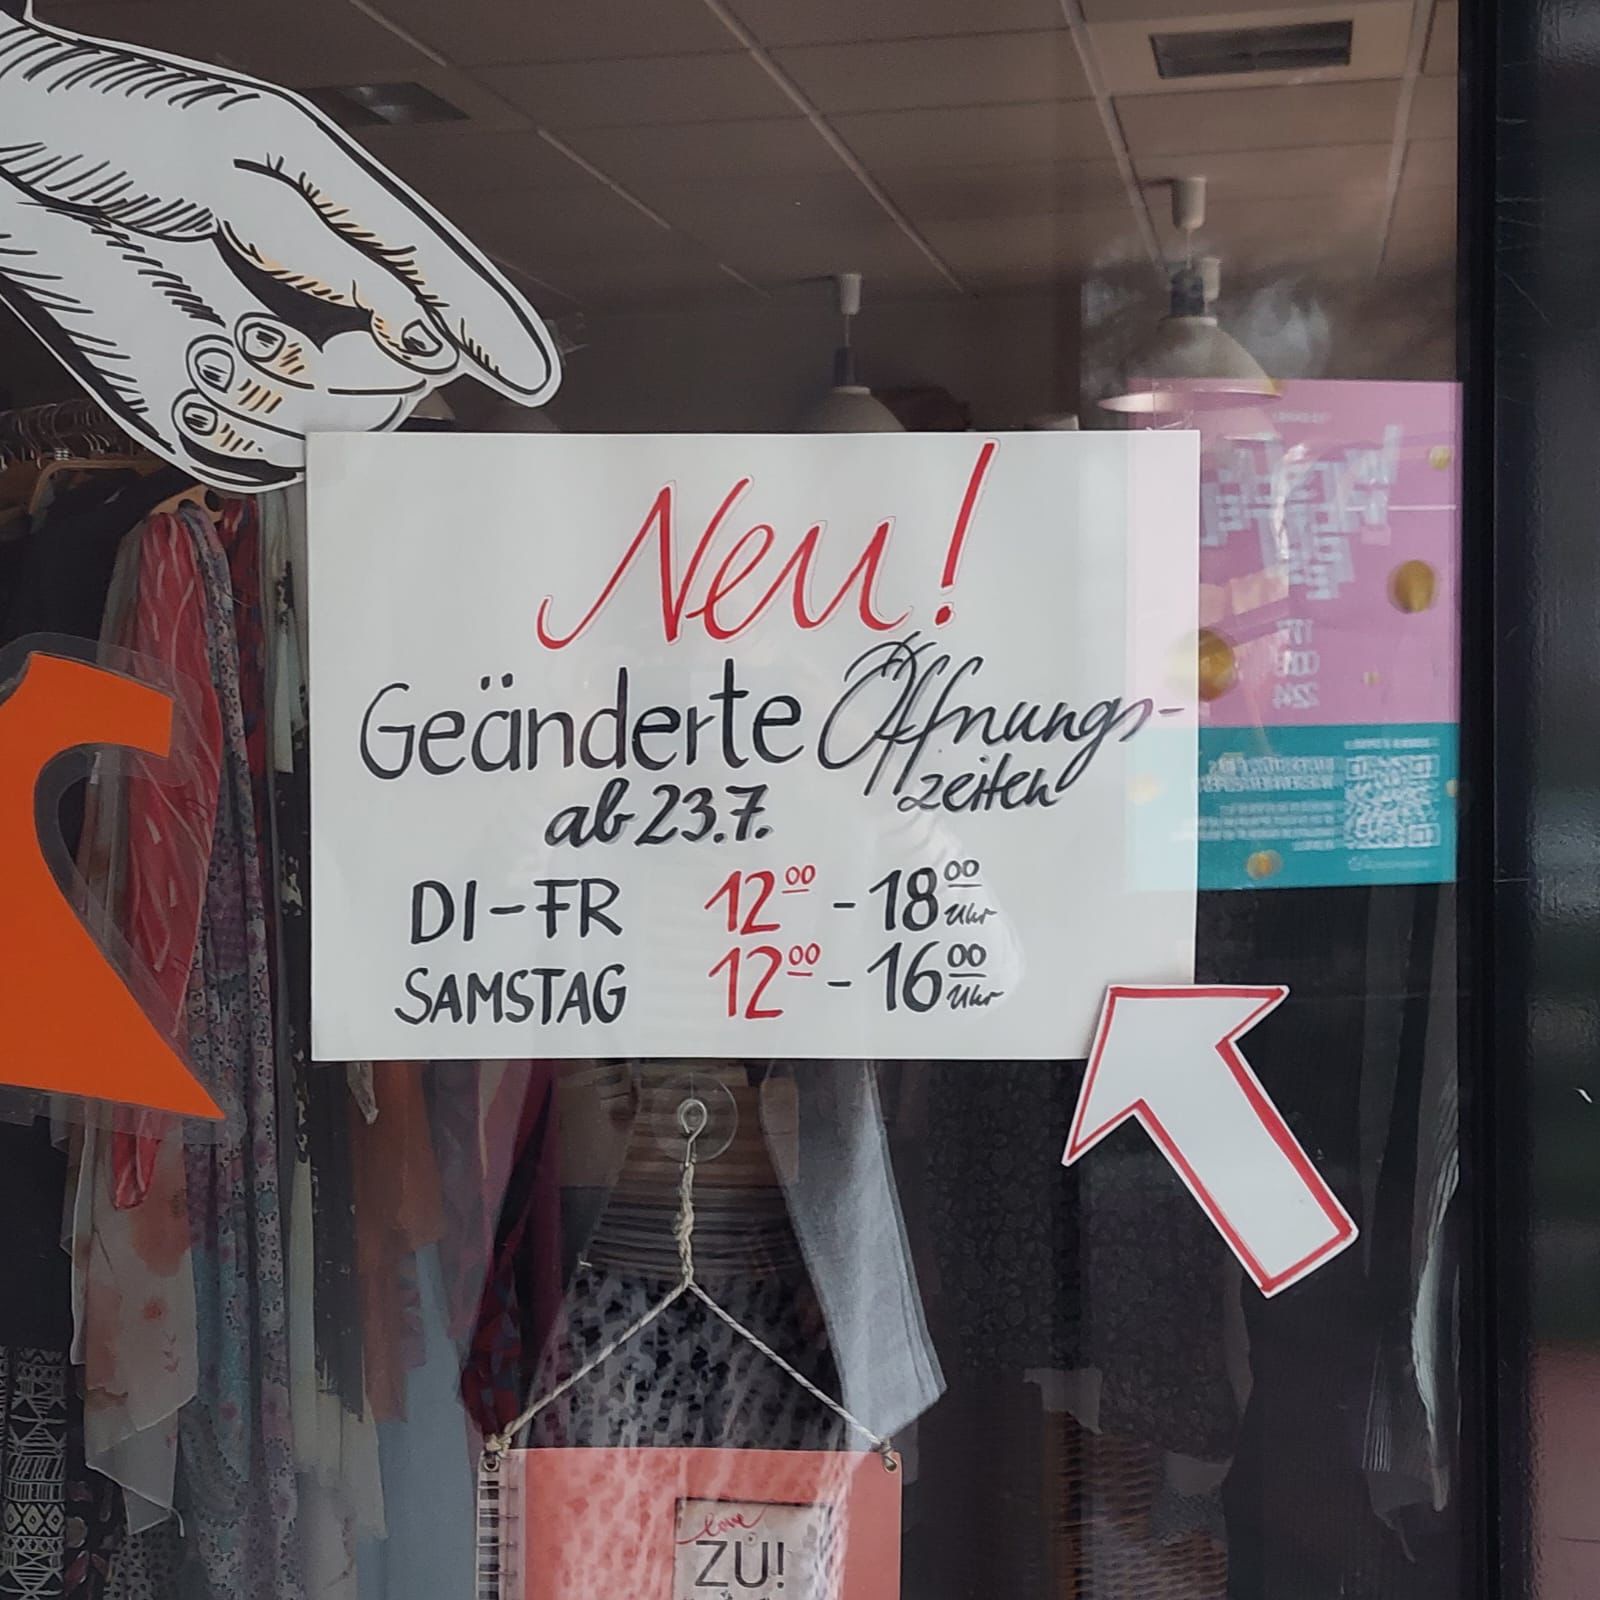 Neu!
Geänderte Öffnungs-
zeiten
ab 23.7.
DI-FR 12⁰⁰ - 18⁰⁰ Uhr
SAMSTAG 12⁰⁰ - 16⁰⁰ Uhr
love
ZU!